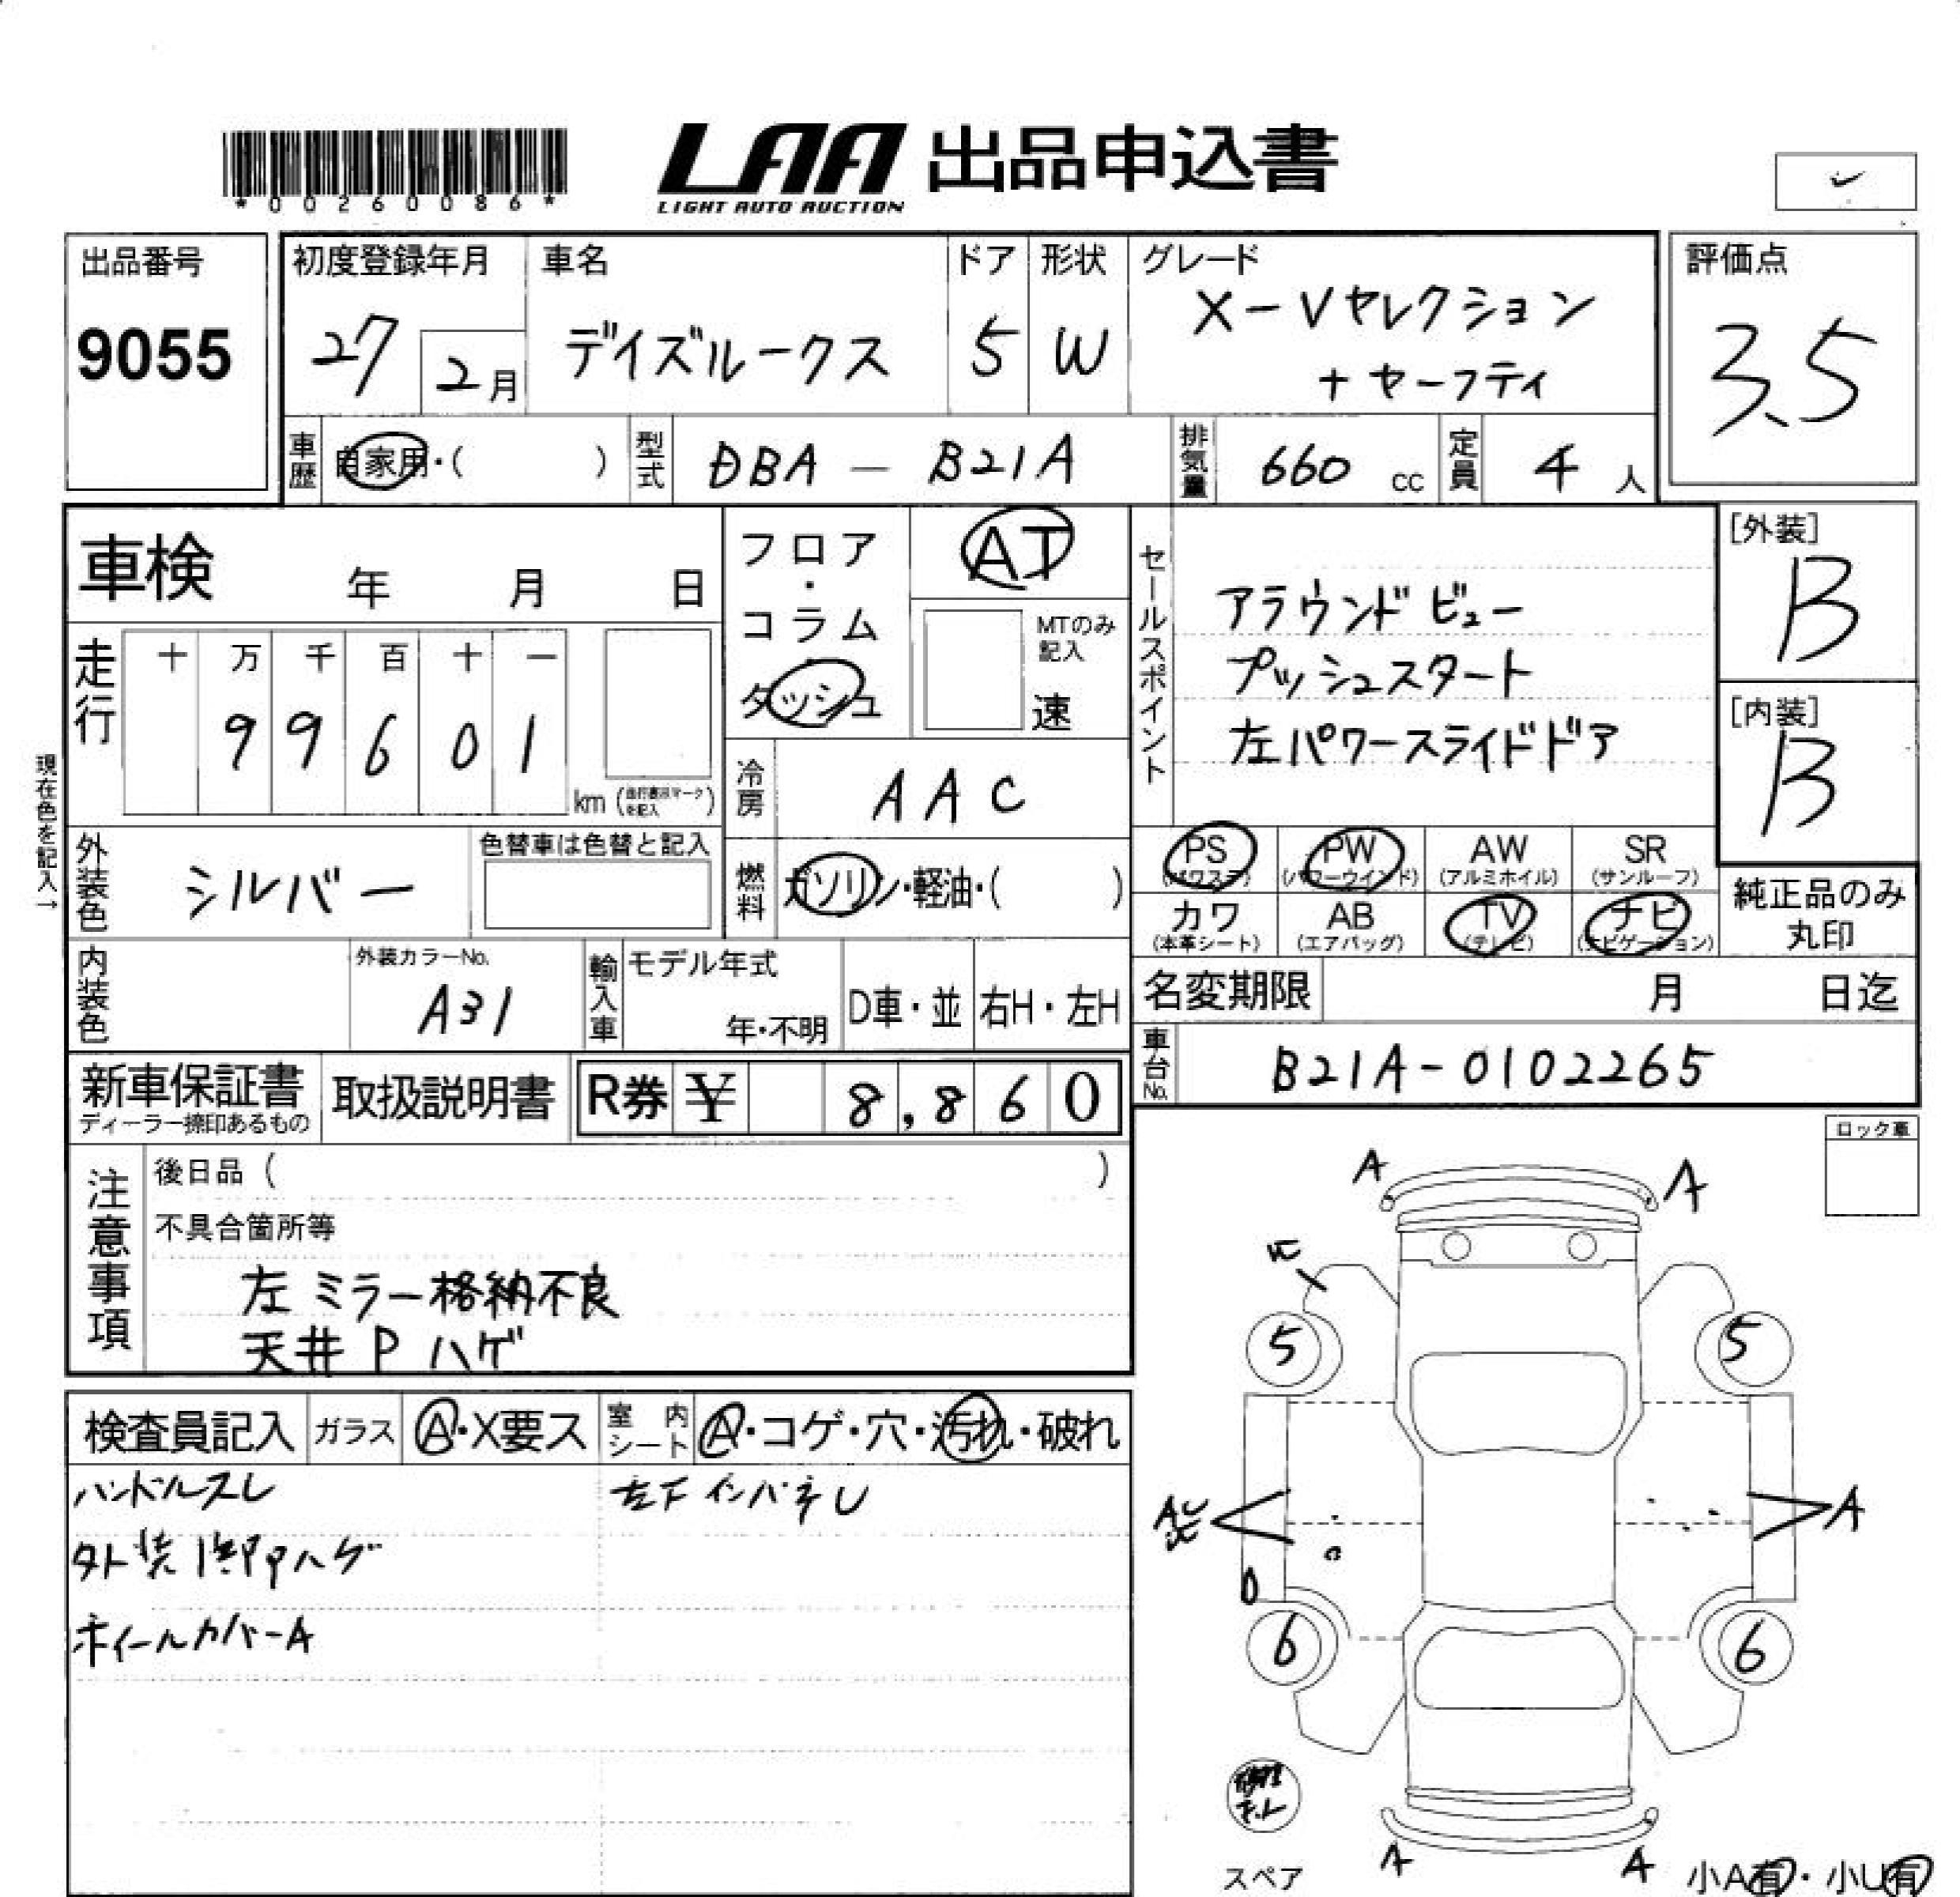 *00260086*
LAA 出品申込書
LIGHT AUTO AUCTION
出品番号
9055
初度登録年月
27 2月
車名
デイズルークス
ドア
5
形状
W
グレード
X-Vセレクション
+セーフティ
評価点
3.5
車歴 自家用・( )
型式 DBA - B21A
排気量 660 cc
定員 4 人
車検 年 月 日
フロア・コラム ダッシュ
AT
MTのみ記入
速
セールスポイント
アラウンドビュー
プッシュスタート
左パワースライドドア
[外装]
B
[内装]
B
走行
十 万 千 百 十 一
9 9 6 0 1
km (走行表示マークを記入)
現在色を記入→
冷房 AAC
外装色 シルバー
色替車は色替と記入
燃料 ガソリン・軽油・( )
PS (パワステ)
PW (パワーウインド)
AW (アルミホイル)
SR (サンルーフ)
カワ (本革シート)
AB (エアバッグ)
TV (テレビ)
ナビ (ナビゲーション)
純正品のみ
丸印
内装色
外装カラーNo.
A31
輸入車
モデル年式
年・不明
D車・並
右H・左H
名変期限 月 日迄
車台No. B21A-0102265
新車保証書
ディーラー捺印あるもの
取扱説明書
R券 ¥ 8,860
注意事項
後日品 ( )
不具合箇所等
左ミラー格納不良
天井Pハゲ
ロック車
検査員記入
ガラス A・X要ス
室内シート A・コゲ・穴・汚れ・破れ
ハンドルスレ
左下インパネU
外装1部Pハゲ
ホイールカバーA
A A
5 5
A
A
6 6
修理キット
スペア
A A
小A有・小U有